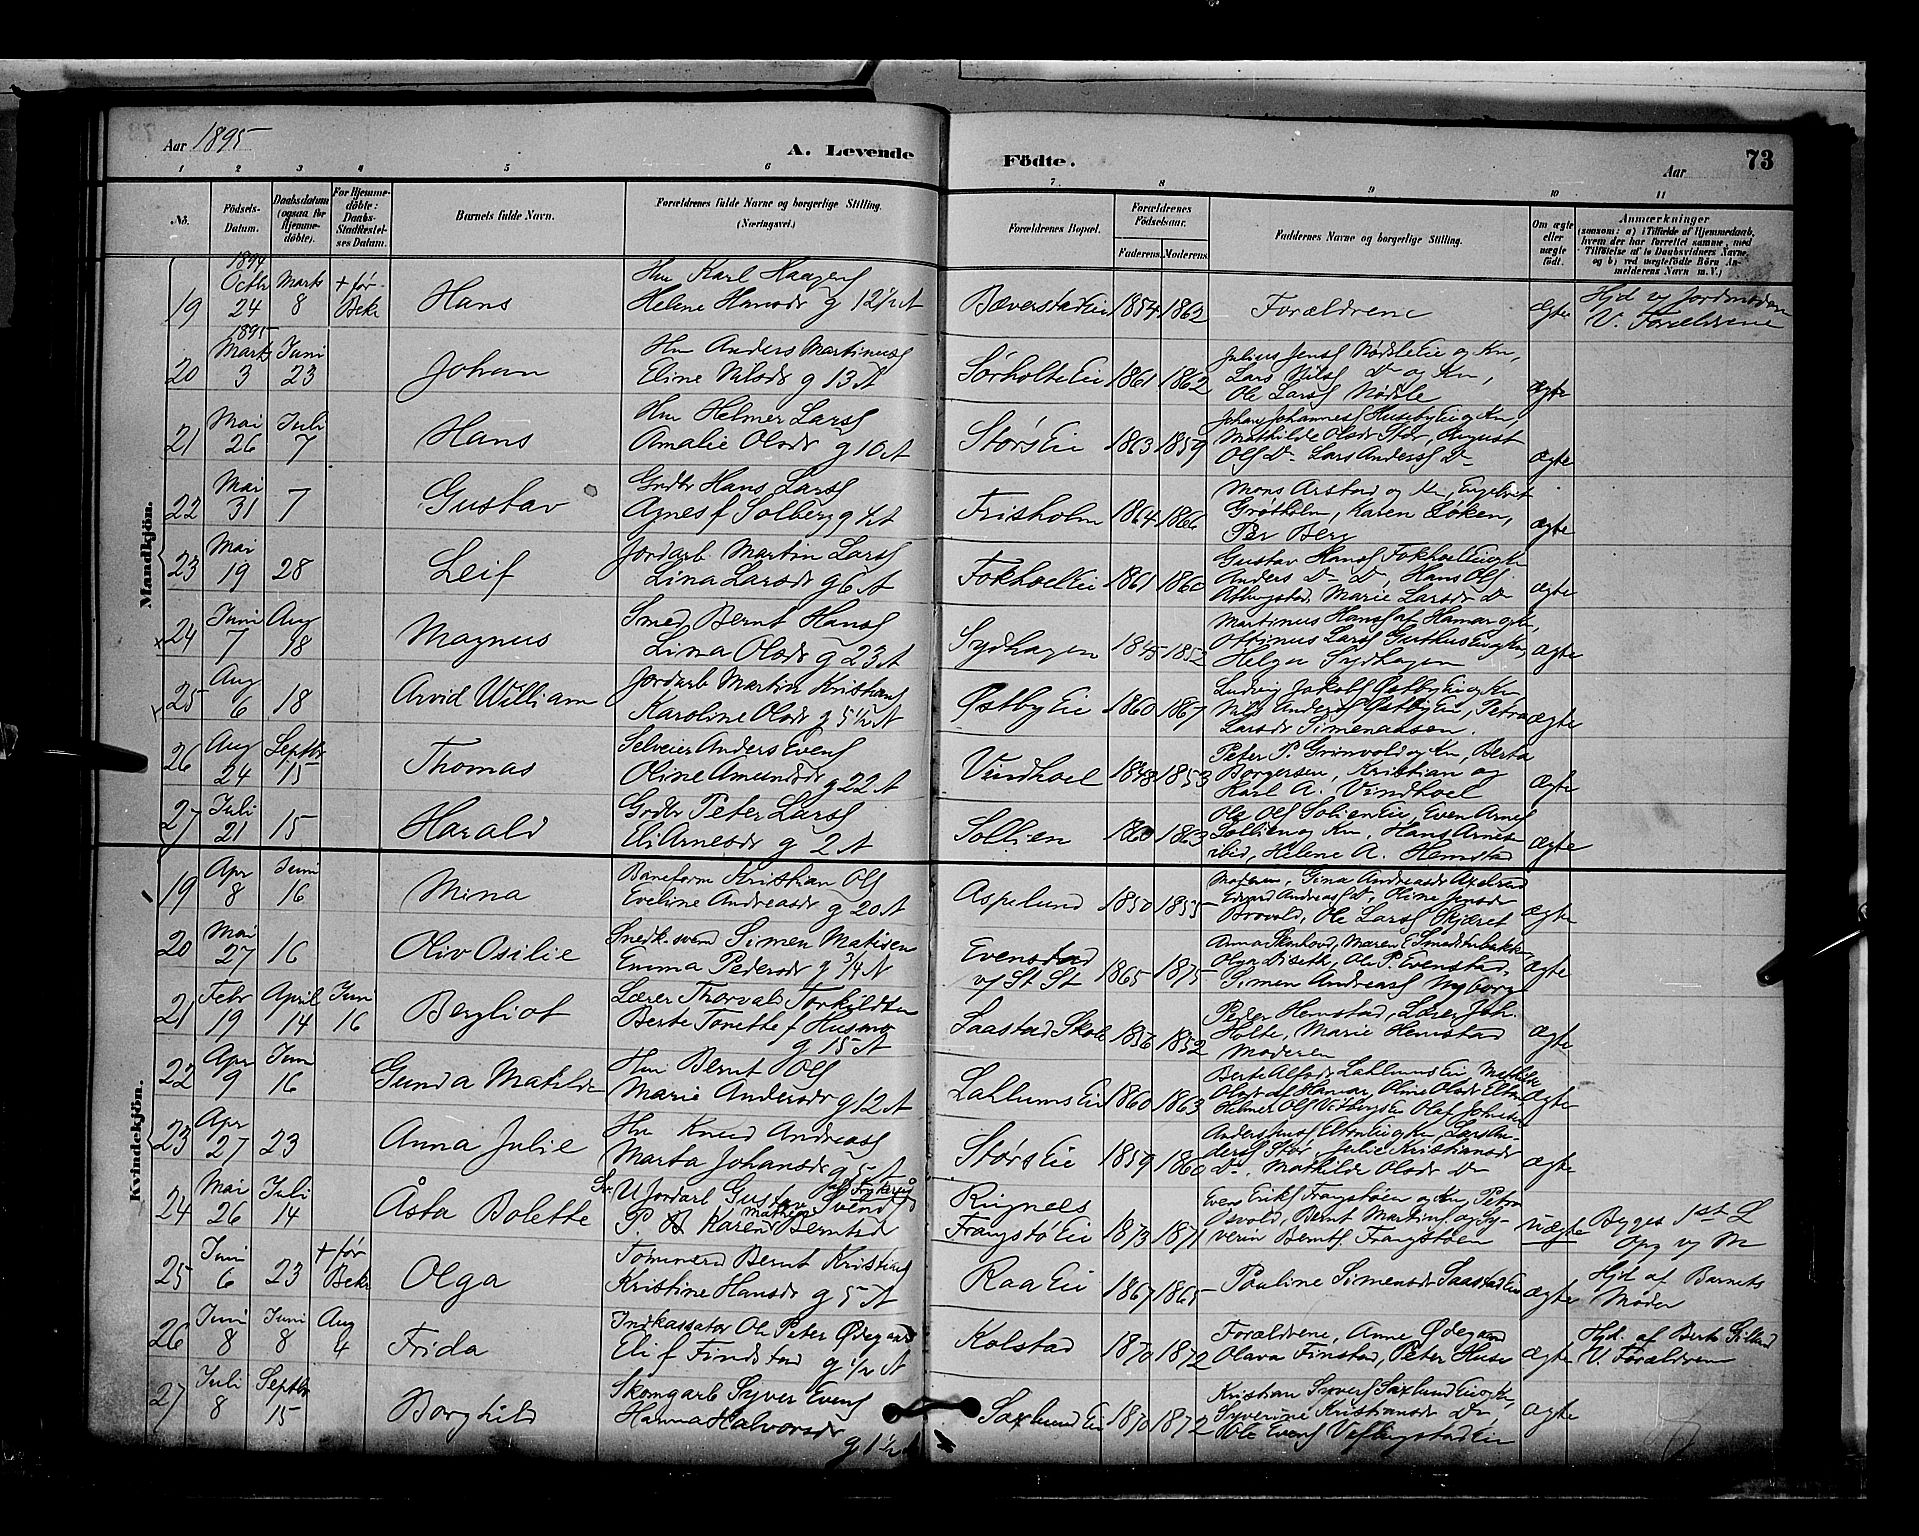 Aar 1895
A. Levende
Födte.
Aar
73
1 2 3 4 5 6 7 8 9 10 11
No.
Födsels-Datum.
Daabsdatum (ogsaa for Hjemme-döbte).
For Hjemme-döbte: Daabs-Stadfæstel-ses Datum.
Barnets fulde Navn.
Forældrenes fulde Navne og borgerlige Stilling. (Næringsvei.)
Forældrenes Bopæl.
Forældrenes Födselsaar.
Faderens. Moderens.
Faddernes Navne og borgerlige Stilling.
Om ægte eller uægte födt.
Anmærkninger
(saasom: a) i Tilfælde af Hjemmedaab, hvem der har forrettet samme, med Tilföielse af to Daabsvidners Navne, og b) ved uægtefödte Börn An-melderens Navn m. V.)
Mandkjön.
19 1894 Octbr 24 Marts 8 + før Bekr Hans
Hm Karl Haagens
Helene Hansdr g 12 1/2 A
Bæverstad Eie 1854 1862 Forældrene ægte Hjd v Jordmoderen
V. Forældrene
20 1895 Marts 3 Juni 23 Johan
Hm Anders Martinus
Eline Nilsdr g 13 A
Sørholte Eie 1861 1862
Julius Jens Nødsle Eie og Kn,
Lars Nils Do og Kn,
Ole Lars Nødsle
ægte
21 Mai 26 Juli 7 Hans
Hm Helmer Lars
Amalie Olsdr g 10 A
Størs Eie 1863 1859
Johan Johannes Huseby Eie og Kn,
Mathilde Olsdr Stør, August
Ols Do Lars Anders Do
ægte
22 Mai 31 7 Gustav
Grdbr Hans Lars
Agnes f Solberg g 4 A
Frisholm 1864 1866
Mons Arstad og Kn, Engebret
Grøtholm, Karen Løken,
Per Berg
ægte
23 Mai 19 28 Leif
Jordarb Martin Lars
Lina Larsdr g 6 A
Fokhol Eie 1861 1860
Gustav Hans Fokhol Eie og Kn
Anders Do Do, Hans Ols
Marie Larsdr Do
ægte
24 Juni 7 Aug 18 Magnus
Smed Bernt Hans
Lina Olsdr g 23 A
Sydhagen 1845 1852
Martinus Hans af Hamar og Kn,
Otrinus Lars Guthus Eie og Kn,
Helga Sydhagen
ægte
25 Aug 6 18 Arvid William
Jordarb Martin Kristians
Karoline Olsdr g 5 1/2 A
Østby Eie 1860 1867
Ludvig Jakobs Østby Eie og Kn
Nils Anders Østby Eie, Petra
Larsdr Simenaasen.
ægte
26 Aug 24 Septbr 15 Thomas
Selveier Anders Evens
Oline Amundsdr g 22 A
Vindhoel 1848 1853
Peter P. Grønvold og Kn, Berta
Borgersen, Kristian og
Karl A. Vindhoel
ægte
27 Juli 21 15 Harald
Grdbr Peter Lars
Eli Arnesdr g 2 A
Sollien 1860 1863
Ole Ols Solien Eie, Even Arnes
Sollien og Kn, Hans Arnes
ibid, Helene A. Hemstad
ægte
Kvindekjön.
19 Apr 8 Juni 16 Mina
Baneform Kristian Ols
Eveline Andreasdr g 20 A
Aspelund 1850 1855
Moderen, Gina Andreasdr
Edvard Andreas Do, Oline Jensdr
Brovold, Ole Lars Skjæret
ægte
20 Mai 27 16 Oliv Osilie
Snedk.svend Simen Matisen
Emma Pedersdr g 3/4 A
Evenstad
v St St 1865 1875
Olga Diseth, Ole P. Evenstad,
Simen Andreas Nyborg
ægte
21 Febr 19 April 14 Juni 16 Bergliot
Lærer Thorvald Torkildsen
Berte Tonette f Husmo
g 15 A
Saastad Skole 1856 1852
Peder Hemstad, Lærer Joh.
Holte, Marie Hemstad
Moderen
ægte
22 Apr 9 Juni 16 Gunda Matilde
Hm Bernt Ols
Marie Andersdr g 12 A
Lahlums Eie 1860 1863
Berte Alfsdr Lahlums Eie, Mathilde
Olsdr af Hamar, Oline Olsdr
Helmer Ols
ægte
23 Apr 27 23 Anna Julie
Hm Knud Andreas
Marta Johansdr g 5 A
Størs Eie 1859 1860
Anders Jens Elton Eie og Kn, Lars An-
ders Stør, Julie Kristiansdr
Do, Mathilde Olsdr Do
ægte
24 Mai 26 Juli 14 Åsta Bolette
U Jordarb Gustav Svends
P. Karen Mathea Berntsd
Ringnes
Frangstø Eie 1873 1871
Even Eriks Frangstøen og Kn, Petra
Osvold, Bernt Martins og Sy-
verin Bernts Frangstøen
uægte Byges 1st L
Opg v M
25 Juni 6 23 + før Bekr Olga
Tømmerm Bernt Kristians
Kristine Hansdr g 5 A
Raa Eie 1867 1865 Pauline Simensdr Saastad Eie ægte Hjd af Barnets
Moder
26 Juni 8 Juni 8 Aug 4 Frida
Indkassator Ole Peter Ødegaard
Eli f Findstad g 1/2 A
Kolstad 1870 1872
Forældrene, Anne Ødegaard
Olava Finstad, Peter Huse
ægte Hjd. af Berte
V. Forældrene
27 Juli 8 Septbr 15 Borghild
Skomgarb Syver Evens
Hanna Halvorsdr
g 1 1/2 A
Saxlund Eie 1870 1872
Kristian Syvers Saxlund Eie og Kn,
Syverine Kristiansdr Do,
Ole Evens
ægte